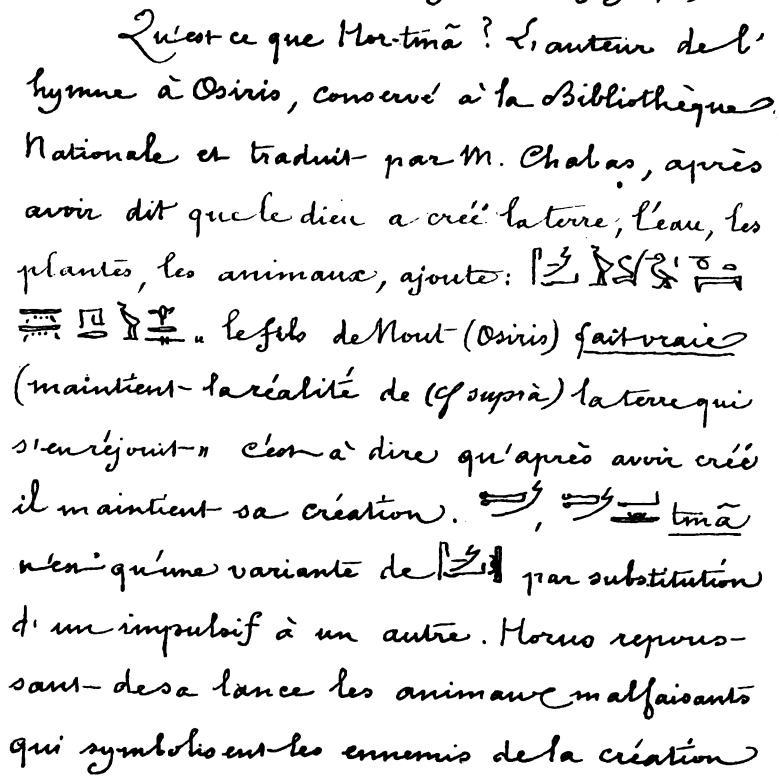 Qu'est ce que Hor-tmã ? L'auteur de l'
hymne à Osiris, conservé à la Bibliothèque
Nationale et traduit par M. Chabas, après
avoir dit que le dieu a créé la terre, l'eau, les
plantes, les animaux, ajoute :
" le fils de Nout (Osiris) fait vraie
(maintient la réalité de (cf suprà) la terre qui
s'en réjouit " c'est à dire qu'après avoir créé
il maintient sa création. , tmã
n'est qu'une variante de par substitution
d'un impulsif à un autre. Horus repous-
sant de sa lance les animaux malfaisants
qui symbolisent les ennemis de la création